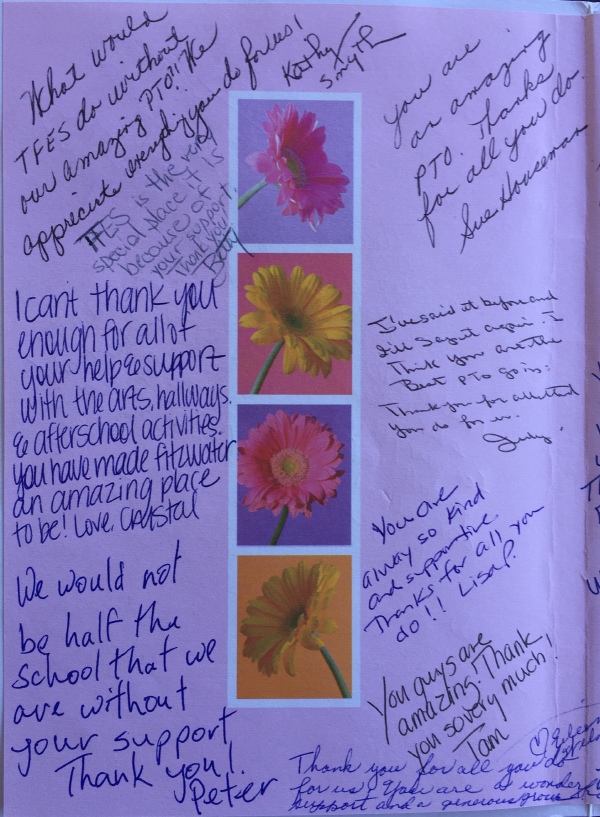 What would
TFES do without
our amazing PTO!! We
appreciate everything you do for us!
Kathy
Smyth
TFES is the very
special place it is
because of
your support.
Thank you!
Betty
I cant thank you
enough for all of
your help & support
with the arts, hallways,
& afterschool activities!
you have made fitzwater
an amazing place
to be! Love, Crystal
We would not
be half the
school that we
are without
your support
Thank you!
Peter
you are
an amazing
PTO. Thanks
for all you do.
Sue Houseman
I've said it before and
I'll say it again. I
Think you are the
Best PTO going.
Thank you for all that
you do for us.
Judy
You are
alway so kind
and supportive
Thanks for all you
do!! Lisa P.
You guys are
amazing. Thank
you so very much!
Tam
Thank you for all you do
for us! You are a wonder
support and a generous group
Eileen